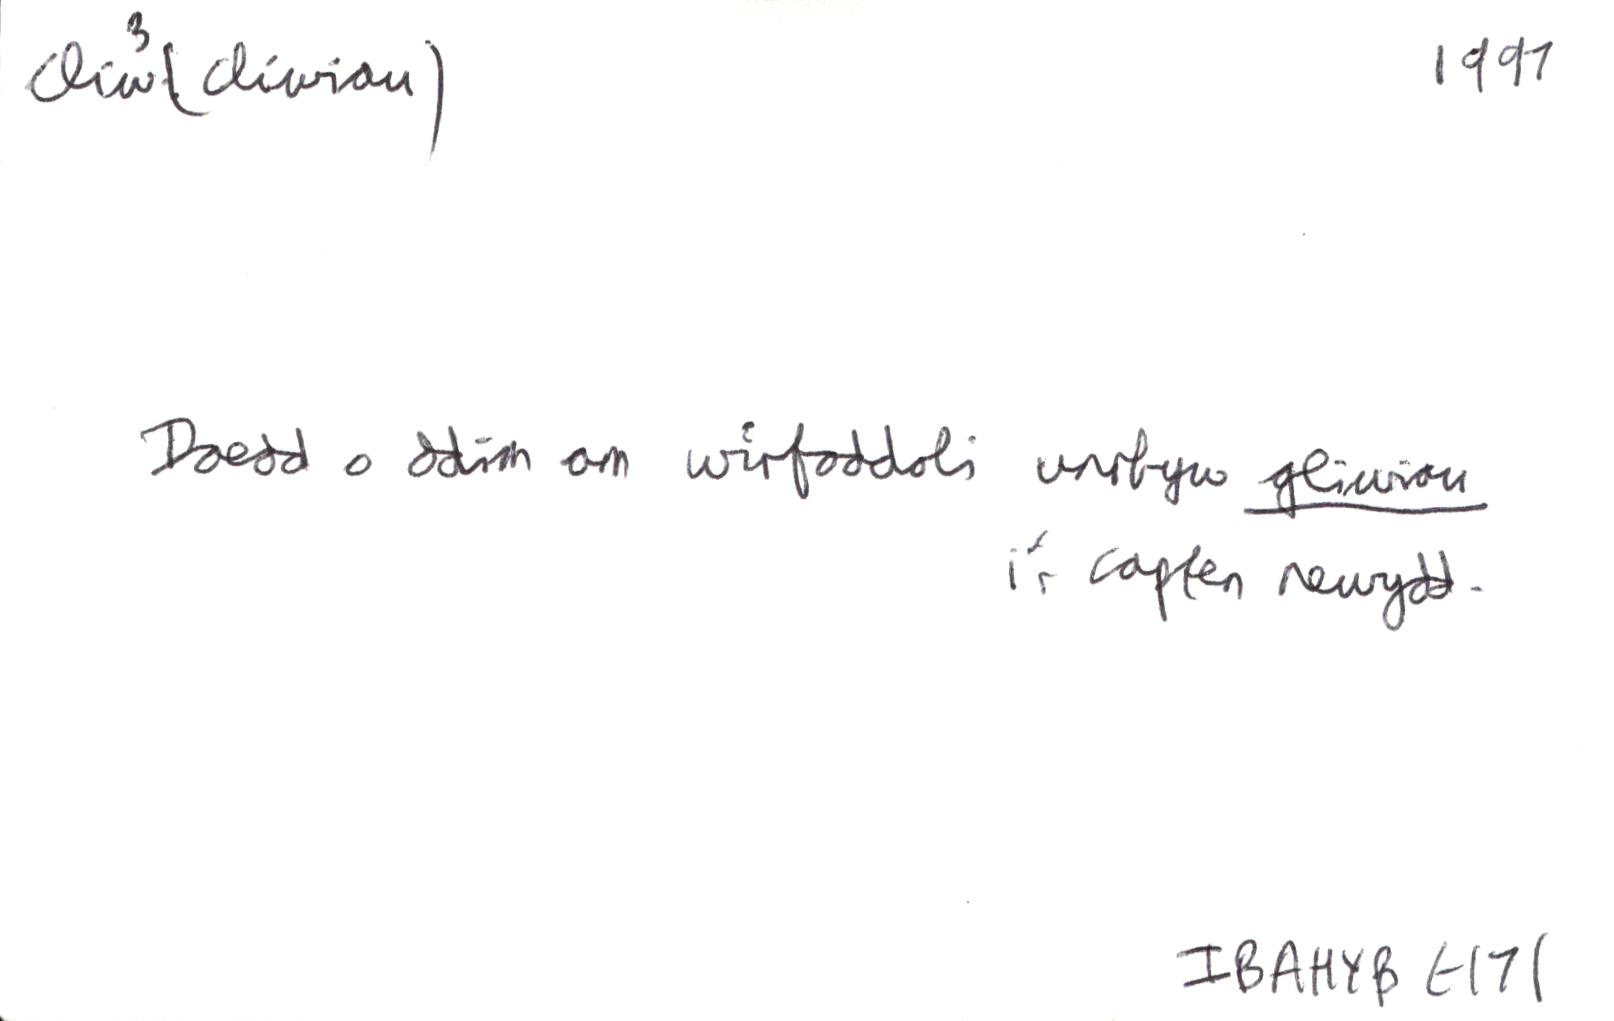 cliw³ (cliwiau) 1997
Doedd o ddim am wirfoddoli unrhyw gliwiau
i'r capten newydd.
IBAHYB t171